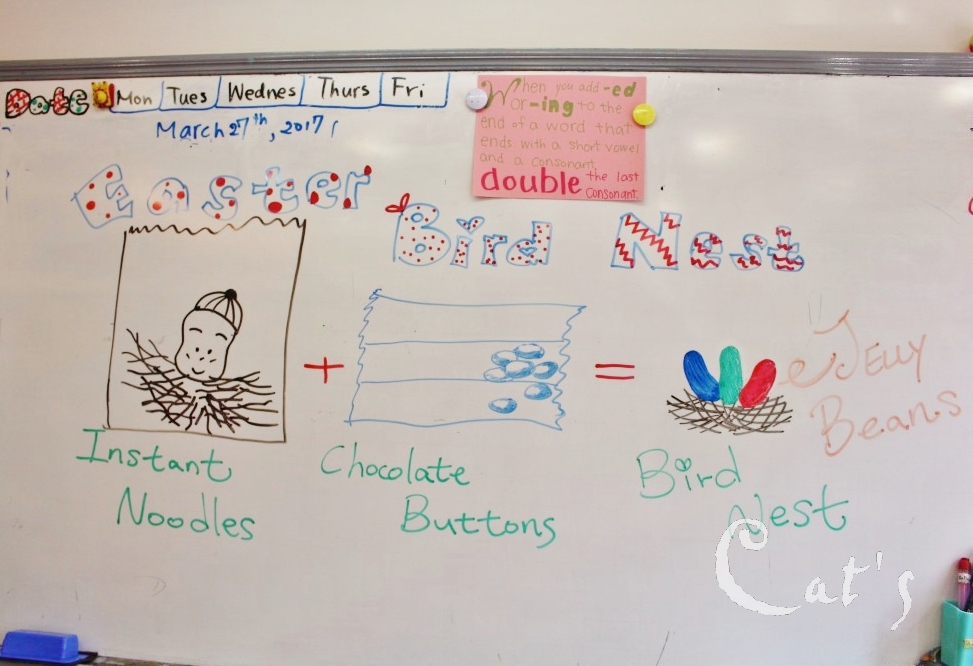 Date Mon Tues Wednes Thurs Fri
March 27th, 2017
When you add -ed
or -ing to the
end of a word that
ends with a short vowel
and a consonant,
double the last
consonant.
Easter Bird Nest
+ =
Jelly
Beans
Instant
Noodles
Chocolate
Buttons
Bird
Nest
Cat's